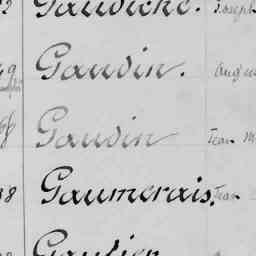 2 Gaudiche. Joseph
9 Gaudin. Augus
Gaudin Jean M
8 Gaumerais. Jean
Gautier